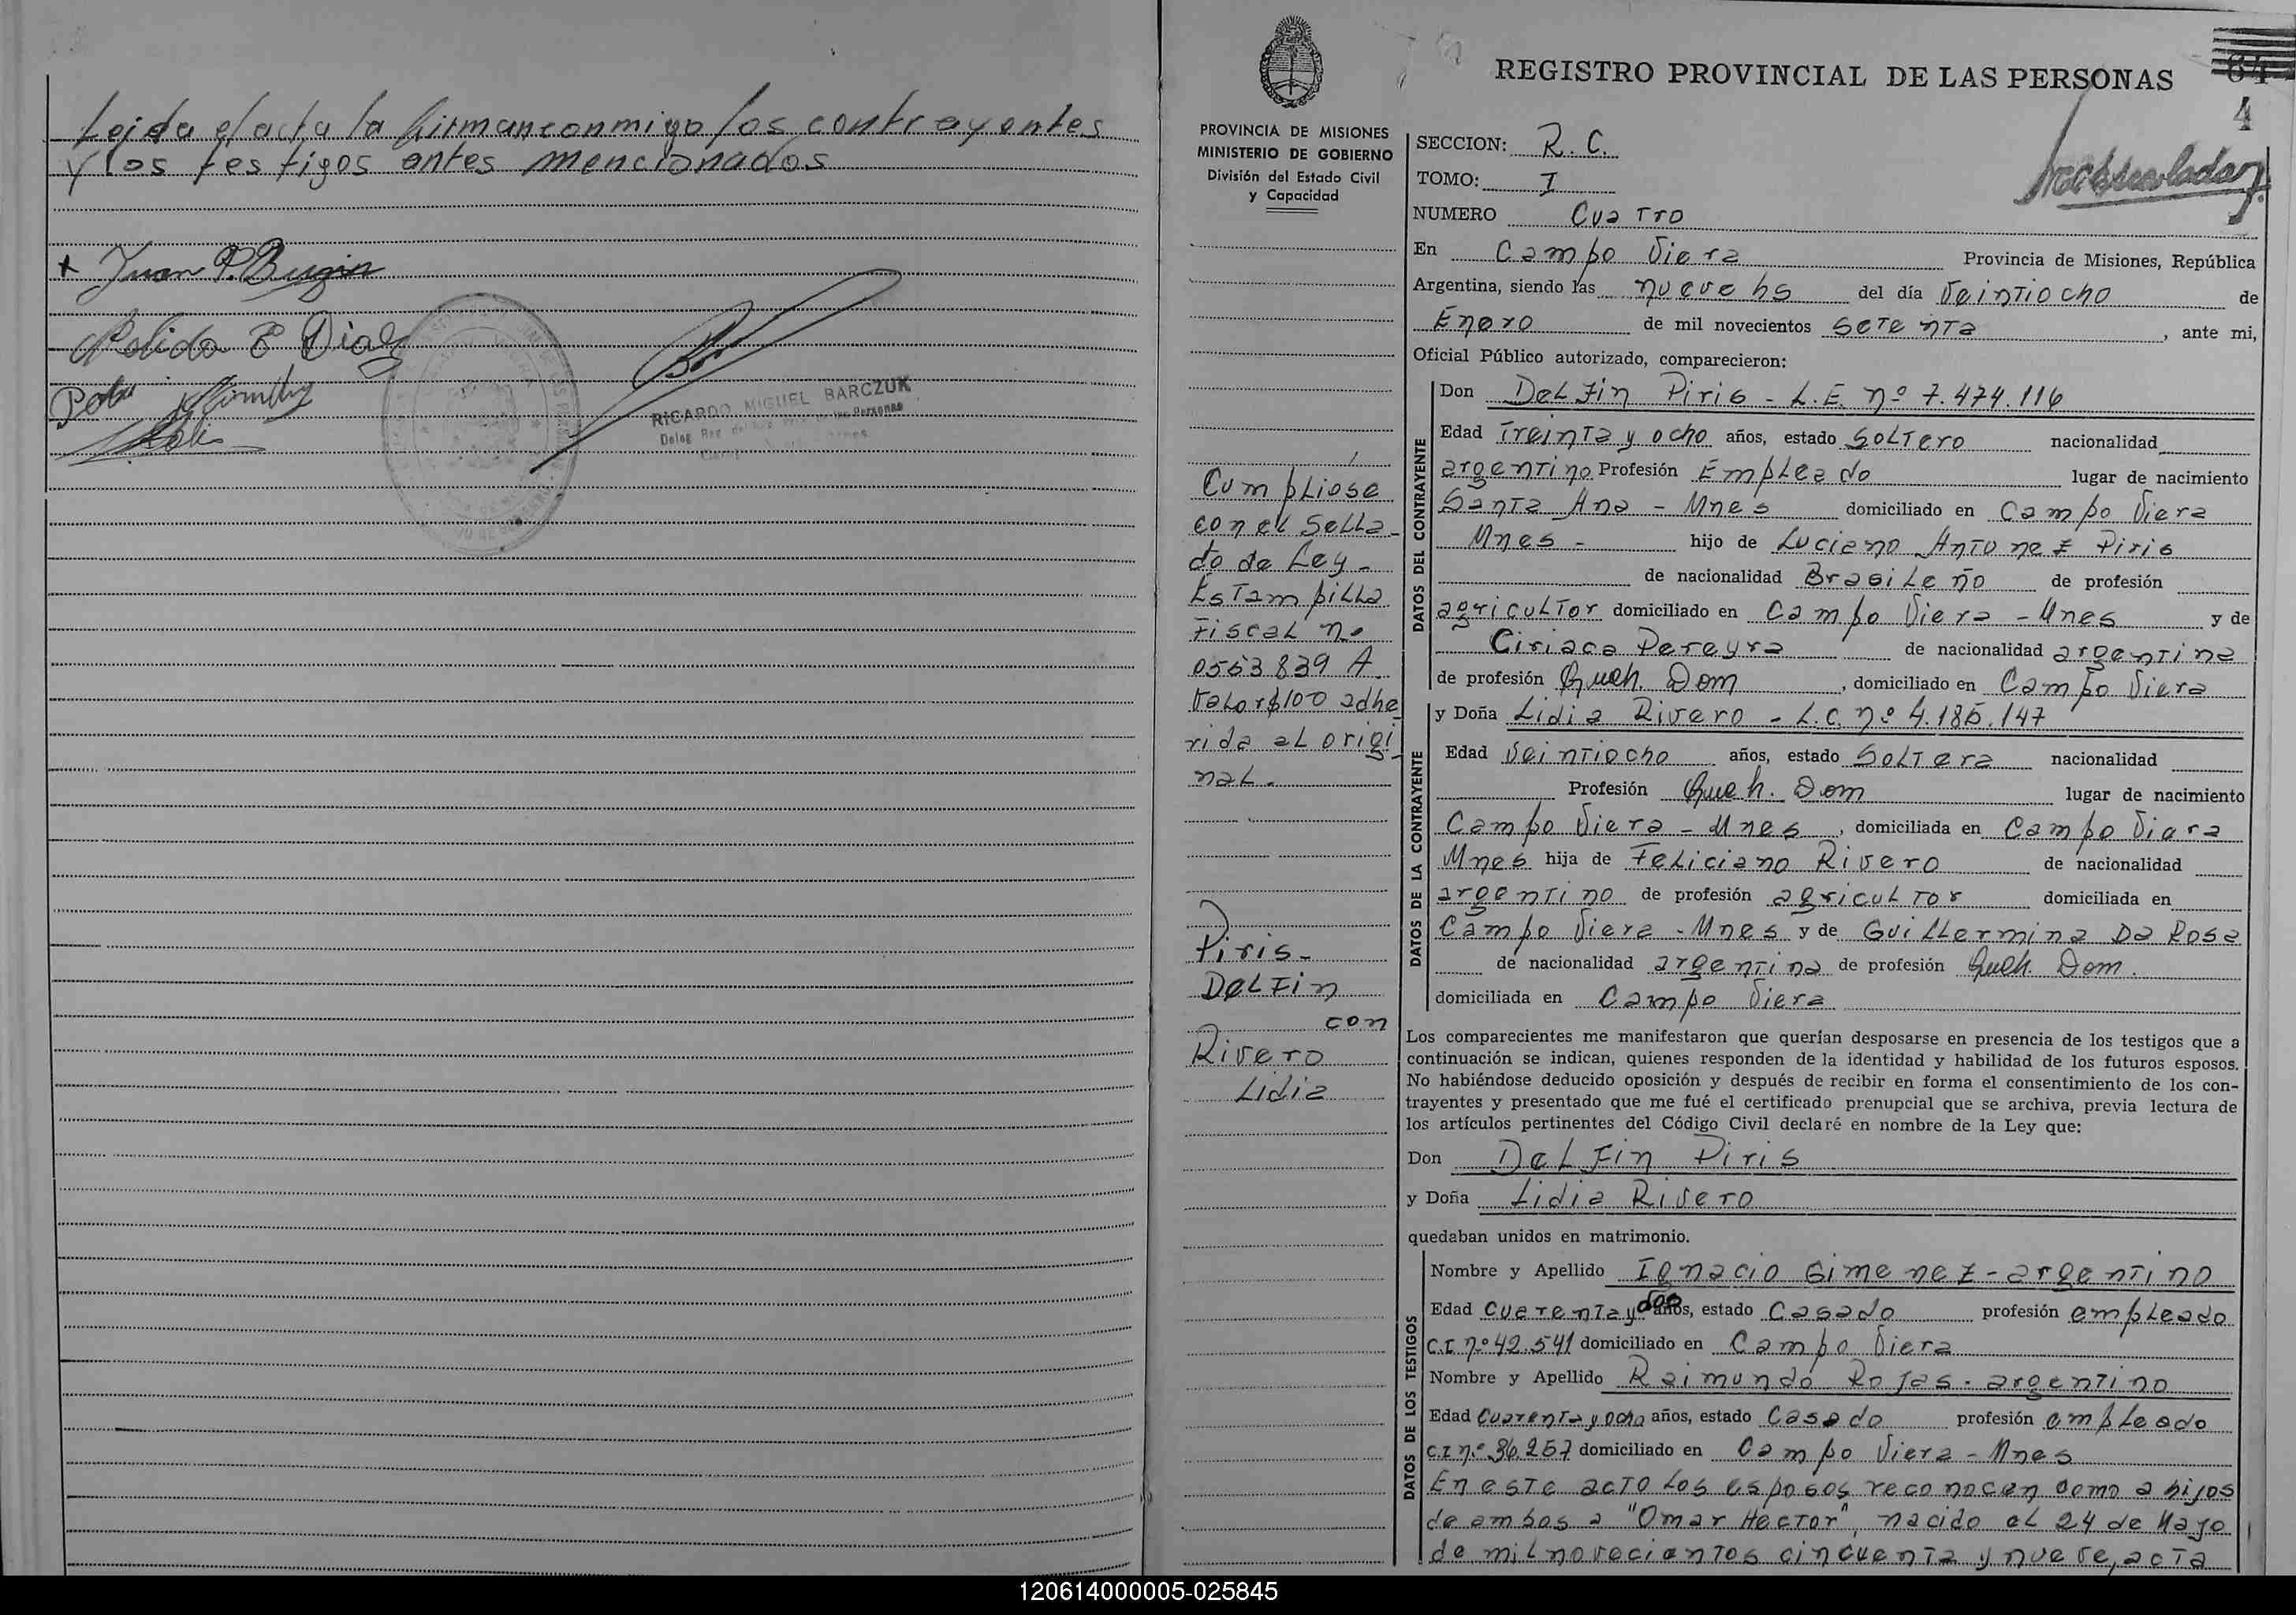 Leida el acta la firman conmigo los contrayentes
y los testigos antes mencionados
Nelida E Diaz
RICARDO MIGUEL BARCZUK
REGISTRO PROVINCIAL DE LAS PERSONAS
64
4
PROVINCIA DE MISIONES
MINISTERIO DE GOBIERNO
División del Estado Civil
y Capacidad
Cumpliose
con el Sella-
do de Ley-
Estampilla
Fiscal no
0553839 A.
Valor $100 adhe
rida al origi
nal.
Piris-
Delfin
con
Rivero
Lidia
SECCION: R. C.
TOMO: I
NUMERO Cuatro
En Campo Viera Provincia de Misiones, República
Argentina, siendo las nueve hs del día Veintiocho de
Enero de mil novecientos Setenta, ante mi,
Oficial Público autorizado, comparecieron:
DATOS DEL CONTRAYENTE
Don Delfin Piris - L.E. nº 7.474.116
Edad Treinta y ocho años, estado Soltero nacionalidad
argentino Profesión Empleado lugar de nacimiento
Santa Ana - Mnes domiciliado en Campo Viera
Mnes - hijo de Luciano Antunez Piris
de nacionalidad Brasileño de profesión
agricultor domiciliado en Campo Viera - Mnes y de
Ciriaca Pereyra de nacionalidad argentina
de profesión Queh. Dom, domiciliado en Campo Viera
DATOS DE LA CONTRAYENTE
y Doña Lidia Rivero - L.C. nº 4.185.147
Edad Veintiocho años, estado Soltera nacionalidad
Profesión Queh. Dom lugar de nacimiento
Campo Viera - Mnes, domiciliada en Campo Viera
Mnes hija de Feliciano Rivero de nacionalidad
argentino de profesión agricultor domiciliada en
Campo Viera - Mnes y de Guillermina Da Rosa
de nacionalidad argentina de profesión Queh. Dom.
domiciliada en Campo Viera
Los comparecientes me manifestaron que querían desposarse en presencia de los testigos que a
continuación se indican, quienes responden de la identidad y habilidad de los futuros esposos.
No habiéndose deducido oposición y después de recibir en forma el consentimiento de los con-
trayentes y presentado que me fué el certificado prenupcial que se archiva, previa lectura de
los artículos pertinentes del Código Civil declaré en nombre de la Ley que:
Don Delfin Piris
y Doña Lidia Rivero
quedaban unidos en matrimonio.
DATOS DE LOS TESTIGOS
Nombre y Apellido Ignacio Gimenez - argentino
Edad Cuarenta y dos años, estado Casado profesión empleado
C.I. nº 42.541 domiciliado en Campo Viera
Nombre y Apellido Raimundo Rojas - argentino
Edad Cuarenta y ocho años, estado Casado profesión empleado
C.I nº 36.257 domiciliado en Campo Viera - Mnes
En este acto los esposos reconocen como a hijos
de ambos a "Omar Hector", nacido el 24 de Mayo
de mil novecientos cincuenta y nueve, acta
120614000005-025845